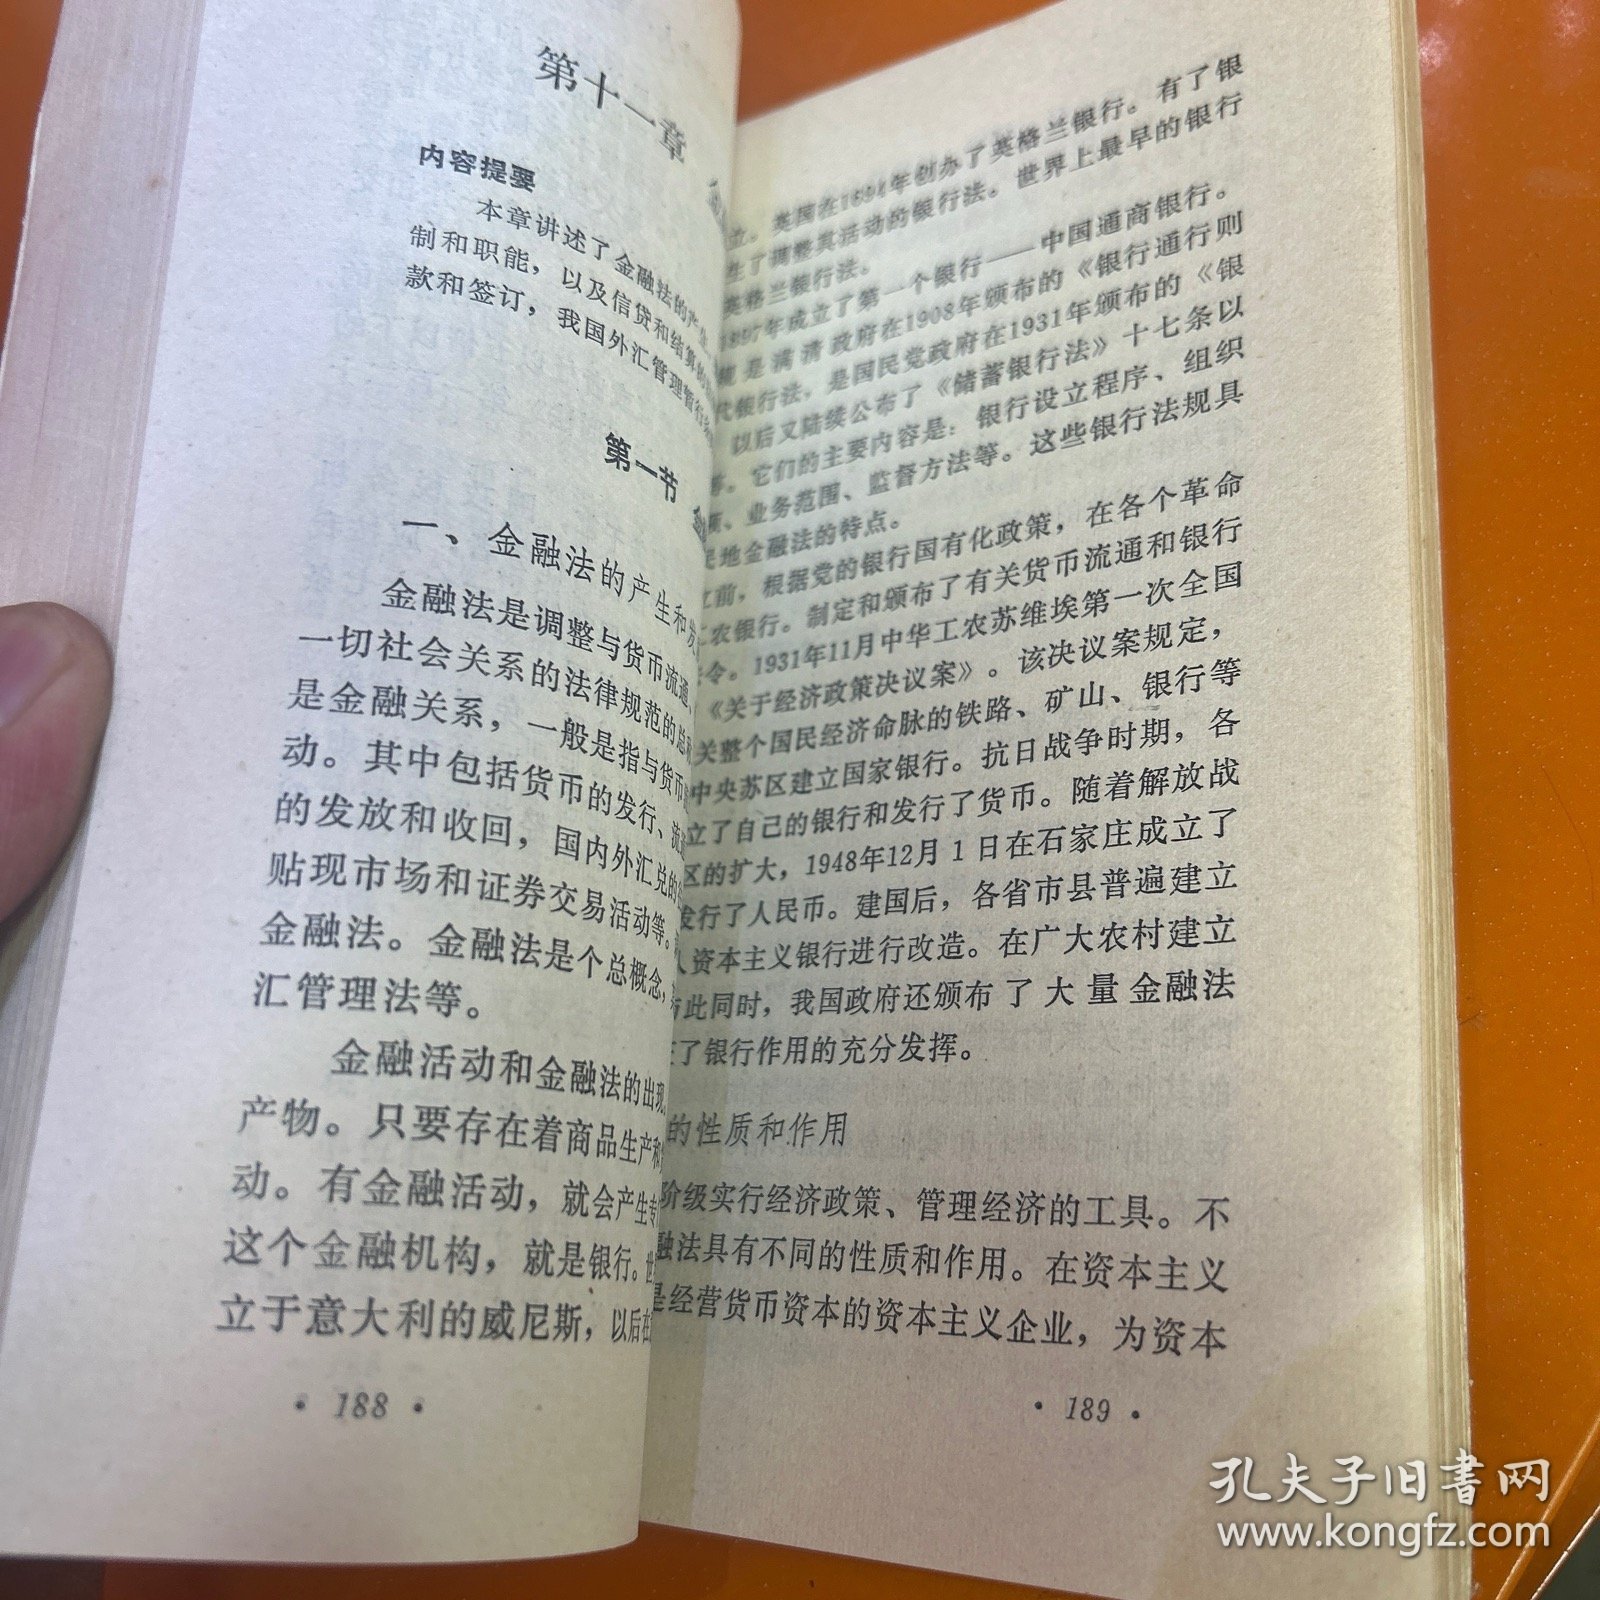 第十一章
内容提要
本章讲述了金融法的产生
制和职能，以及信贷和结算的
款和签订，我国外汇管理暂行条
第一节
一、金融法的产生和发
金融法是调整与货币流通、
一切社会关系的法律规范的总和
是金融关系，一般是指与货币
动。其中包括货币的发行、流
的发放和收回，国内外汇兑的
贴现市场和证券交易活动等。
金融法。金融法是个总概念，
汇管理法等。
金融活动和金融法的出现
产物。只要存在着商品生产和
动。有金融活动，就会产生专
这个金融机构，就是银行。世
立于意大利的威尼斯，以后在
· 188 ·
立。英国在1694年创办了英格兰银行。有了银
生了调整其活动的银行法。世界上最早的银行
英格兰银行法。
1897年成立了第一个银行——中国通商银行。
是满清政府在1908年颁布的《银行通行则
代银行法，是国民党政府在1931年颁布的《银
以后又陆续公布了《储蓄银行法》十七条以
等。它们的主要内容是：银行设立程序、组织
、业务范围、监督方法等。这些银行法规具
民地金融法的特点。
立前，根据党的银行国有化政策，在各个革命
工农银行。制定和颁布了有关货币流通和银行
令。1931年11月中华工农苏维埃第一次全国
《关于经济政策决议案》。该决议案规定，
关整个国民经济命脉的铁路、矿山、银行等
中央苏区建立国家银行。抗日战争时期，各
立了自己的银行和发行了货币。随着解放战
区的扩大，1948年12月1日在石家庄成立了
发行了人民币。建国后，各省市县普遍建立
人资本主义银行进行改造。在广大农村建立
与此同时，我国政府还颁布了大量金融法
证了银行作用的充分发挥。
的性质和作用
阶级实行经济政策、管理经济的工具。不
融法具有不同的性质和作用。在资本主义
是经营货币资本的资本主义企业，为资本
· 189 ·
孔夫子旧书网
www.kongfz.com